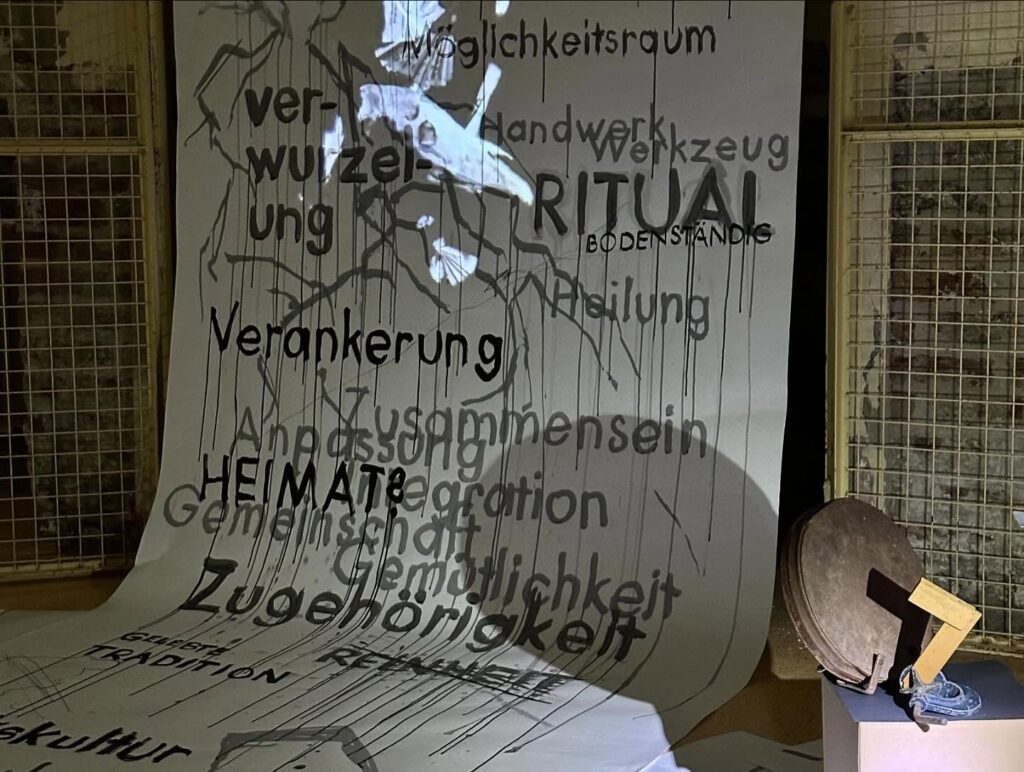 Möglichkeitsraum
ver-
wurzel-
ung
Handwerk
Werkzeug
RITUAL
BODENSTÄNDIG
Heilung
Verankerung
Zusammensein
Anpassung
HEIMAT
Integration
Gemeinschaft
Gemütlichkeit
Zugehörigkeit
GELEBTE
TRADITION
REINHEIT
kultur